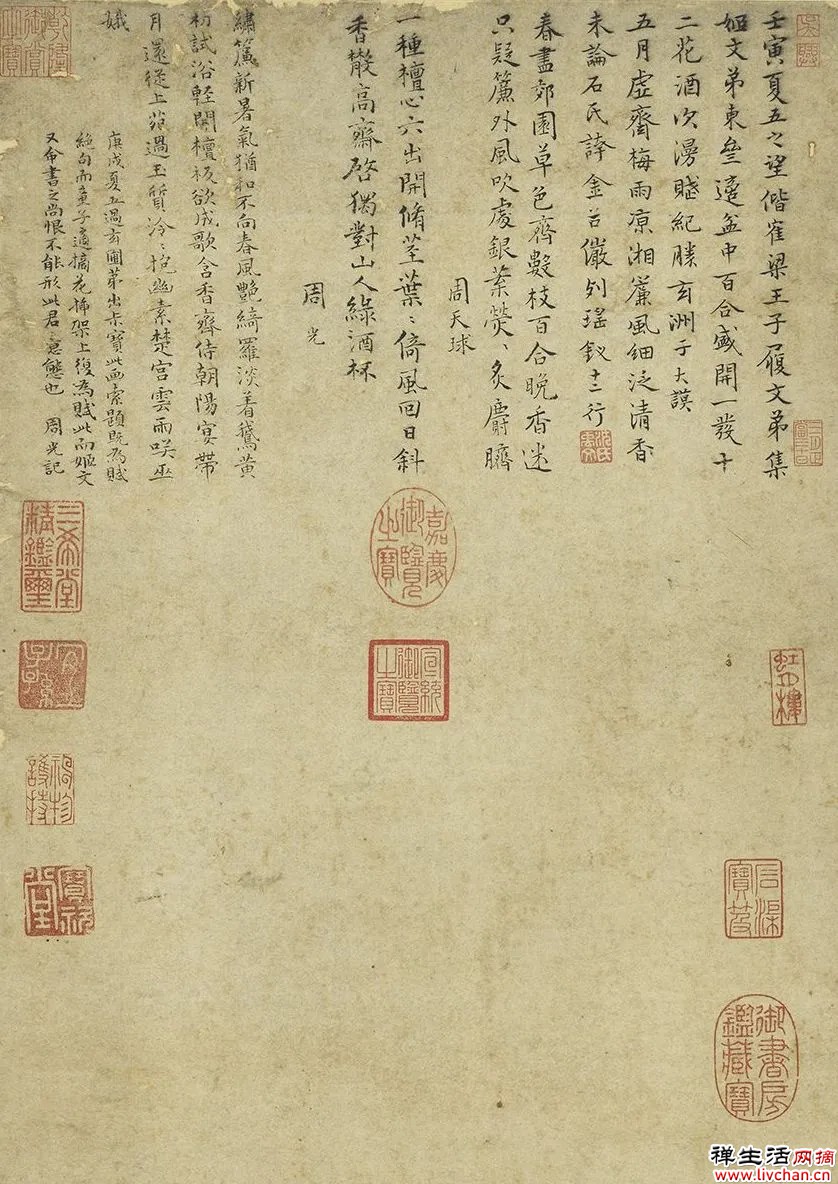 壬寅夏五之望偕崔梁王子履文弟集
姬文弟東叄邊盆中百合盛開一發十
二花酒次漫賦紀勝玄洲于大謨
五月虛齋梅雨凉湘簾風細泛清香
未論石氏誇金谷儼列瑤釵十二行
春盡郊園草色齊數枝百合晚香迷
只疑簾外風吹處銀葉熒〻炙麝臍
周天球
一種檀心六出開脩莖葉〻倚風回日斜
香散高齋啓獨對山人綠酒杯
周光
繡簾新暑氣猶和不向春風艷綺羅淡着鵞黃
初試浴輕開檀板欲成歌含香齊侍朝陽宴帶
月還從上苑過玉質泠〻抱幽素楚宮雲雨咲巫
娥
庚戌夏五過玄圃弟出示寶此画索題既為賦
絶句而童子適摘花插架上復為賦此而姬文
又命書之尚恨不能形此君意態也 周光記
乾隆御賞之寶
三希堂精鑑璽
宜子孫
嘉慶御覽之寶
宣統御覽之寶
御書房鑑藏寶
禅生活网摘
www.livchan.cn